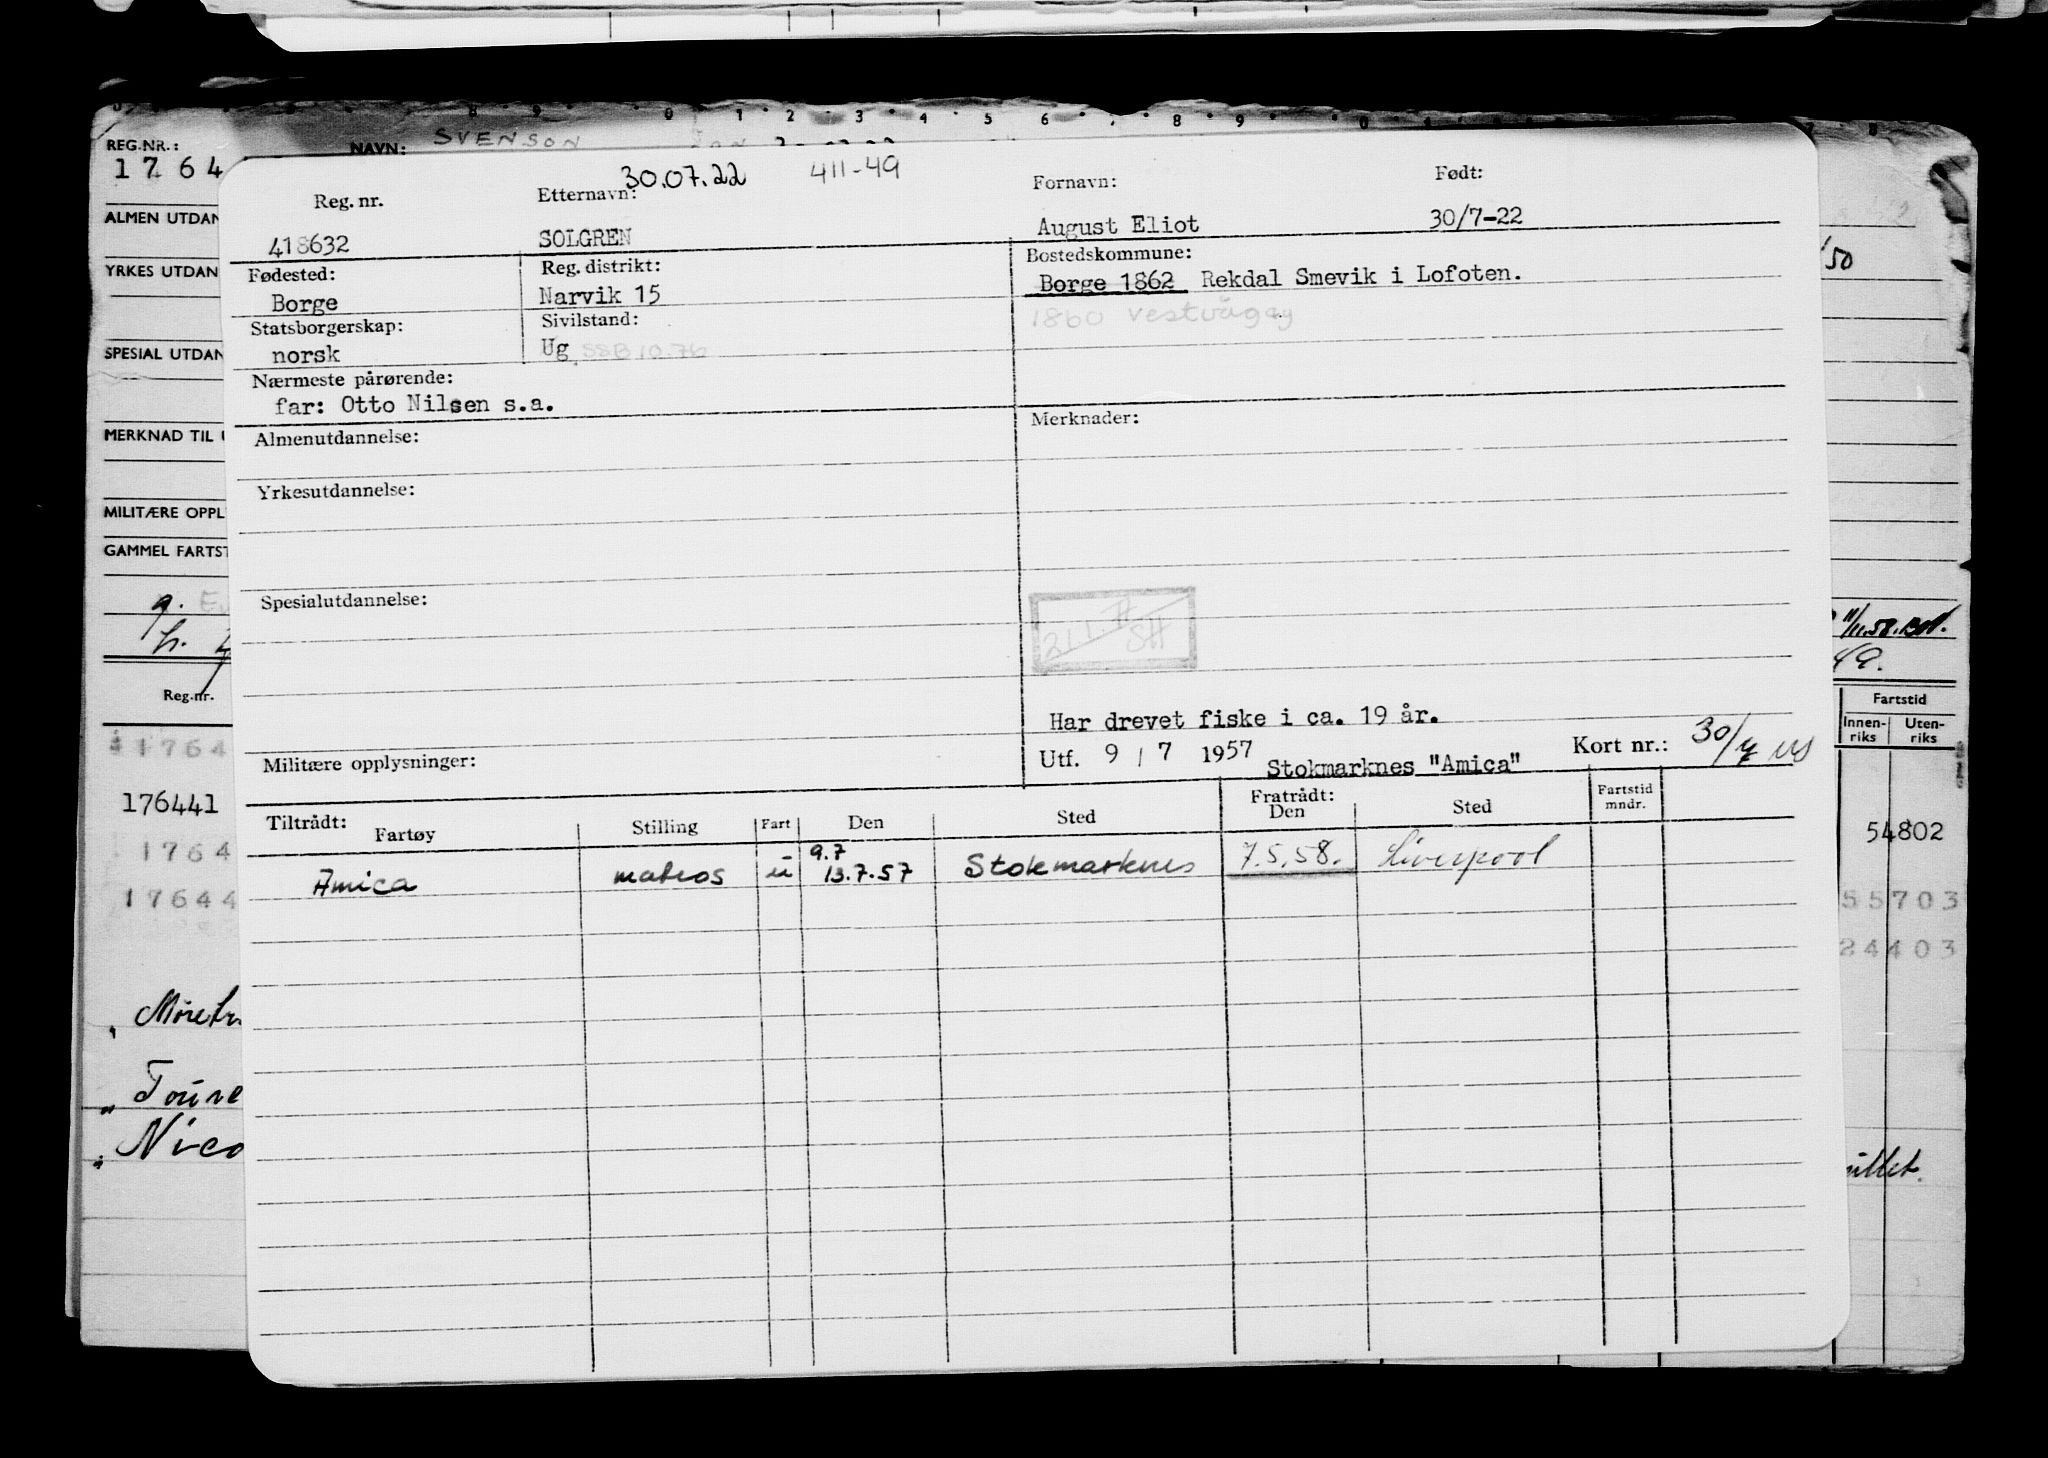 REG.NR.: NAVN: SVENSON
1764
ALMEN UTDAN
YRKES UTDAN
SPESIAL UTDAN
MERKNAD TIL U
MILITÆRE OPPL
GAMMEL FARTST
Reg.nr.
1764
176441
1764
17644
Møretr
Toure
Nico
30.07.22 411-49
Reg. nr. Etternavn: Fornavn: Født:
418632 SOLGREN August Eliot 30/7-22
Fødested: Reg. distrikt: Bostedskommune:
Borge Narvik 15 Borge 1862 Rekdal Smevik i Lofoten.
Statsborgerskap: Sivilstand: 1860 Vestvågøy
norsk Ug SSB 10.76
Nærmeste pårørende:
far: Otto Nilsen s.a.
Almenutdannelse: Merknader:
Yrkesutdannelse:
Spesialutdannelse:
Har drevet fiske i ca. 19 år.
Militære opplysninger: Utf. 9 / 7 1957 Stokmarknes "Amica" Kort nr.: 30/7
Tiltrådt: Fratrådt: Fartstid mndr.
Fartøy Stilling Fart Den Sted Den Sted
9.7
Amica matros u 13.7.57 Stokmarknes 7.5.58. Liverpool
/50
11/11.58.
49.
Fartstid
Innen-riks Uten-riks
54802
55703
24403